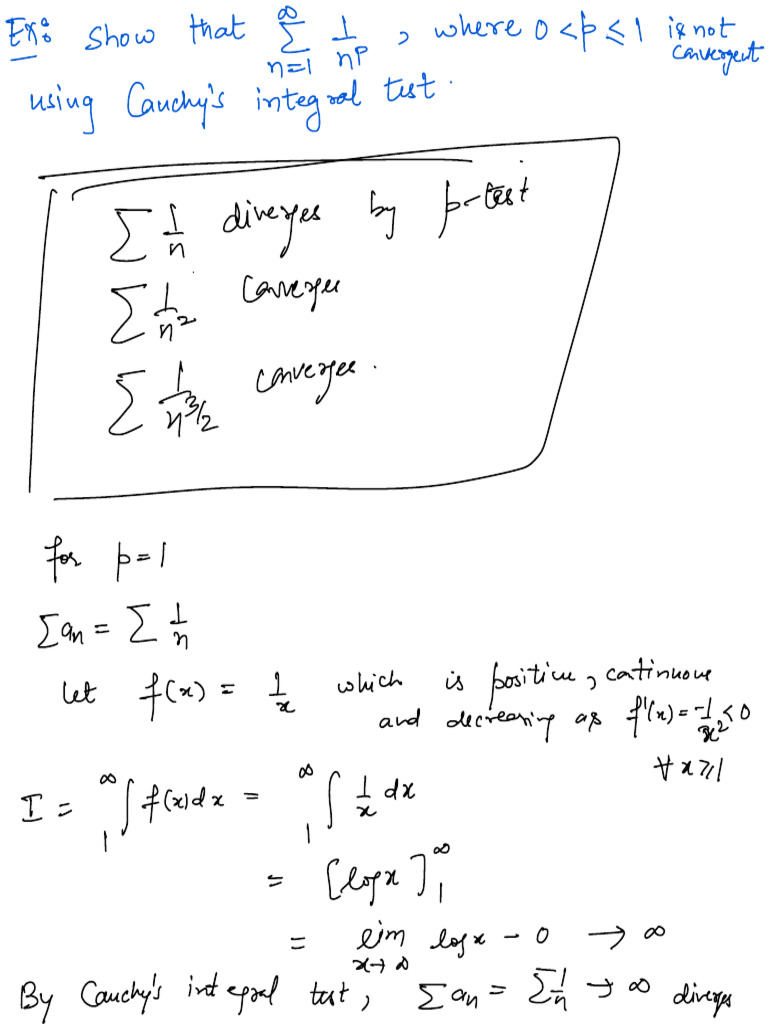 Ex: Show that ∞∑n=1 1/n^p, where 0 < p ≤ 1 is not convergent
using Cauchy's integral test.
∑ 1/n diverges by p-test
∑ 1/n² converges
∑ 1/n^3/2 converges.
for p = 1
∑an = ∑ 1/n
let f(x) = 1/x which is positive, continuous
and decreasing as f'(x) = -1/x² < 0
∀ x ≥ 1
I = ∞∫1 f(x)dx = ∞∫1 1/x dx
= [log x]∞1
= lim x→∞ log x - 0 → ∞
By Cauchy's integral test, ∑an = ∑1/n → ∞ diverges